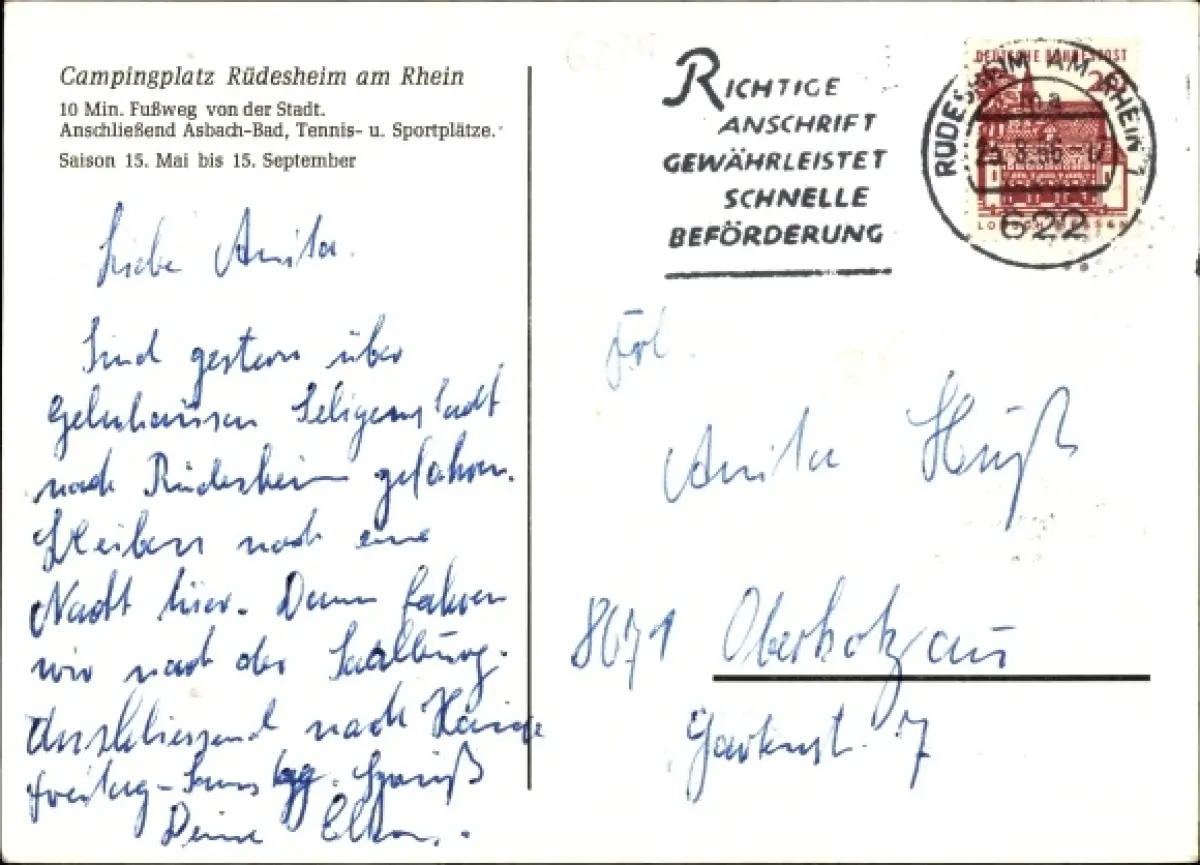 Campingplatz Rüdesheim am Rhein
10 Min. Fußweg von der Stadt.
Anschließend Asbach-Bad, Tennis- u. Sportplätze.
Saison 15. Mai bis 15. September
Liebe Anita.
Sind gestern über
Gelnhausen Seligenstadt
nach Rüdesheim gefahren.
Bleiben noch eine
Nacht hier. Dann fahren
wir nach der Saalburg.
Anschliessend nach Hause
Freitag - Gruß
Deine
RICHTIGE
ANSCHRIFT
GEWÄHRLEISTET
SCHNELLE
BEFÖRDERUNG
DEUTSCHE BUNDESPOST
20
RÜDESHEIM AM RHEIN 1
ma
622
Frl.
Anita
8671 Oberkotzau
Gartenst. 7